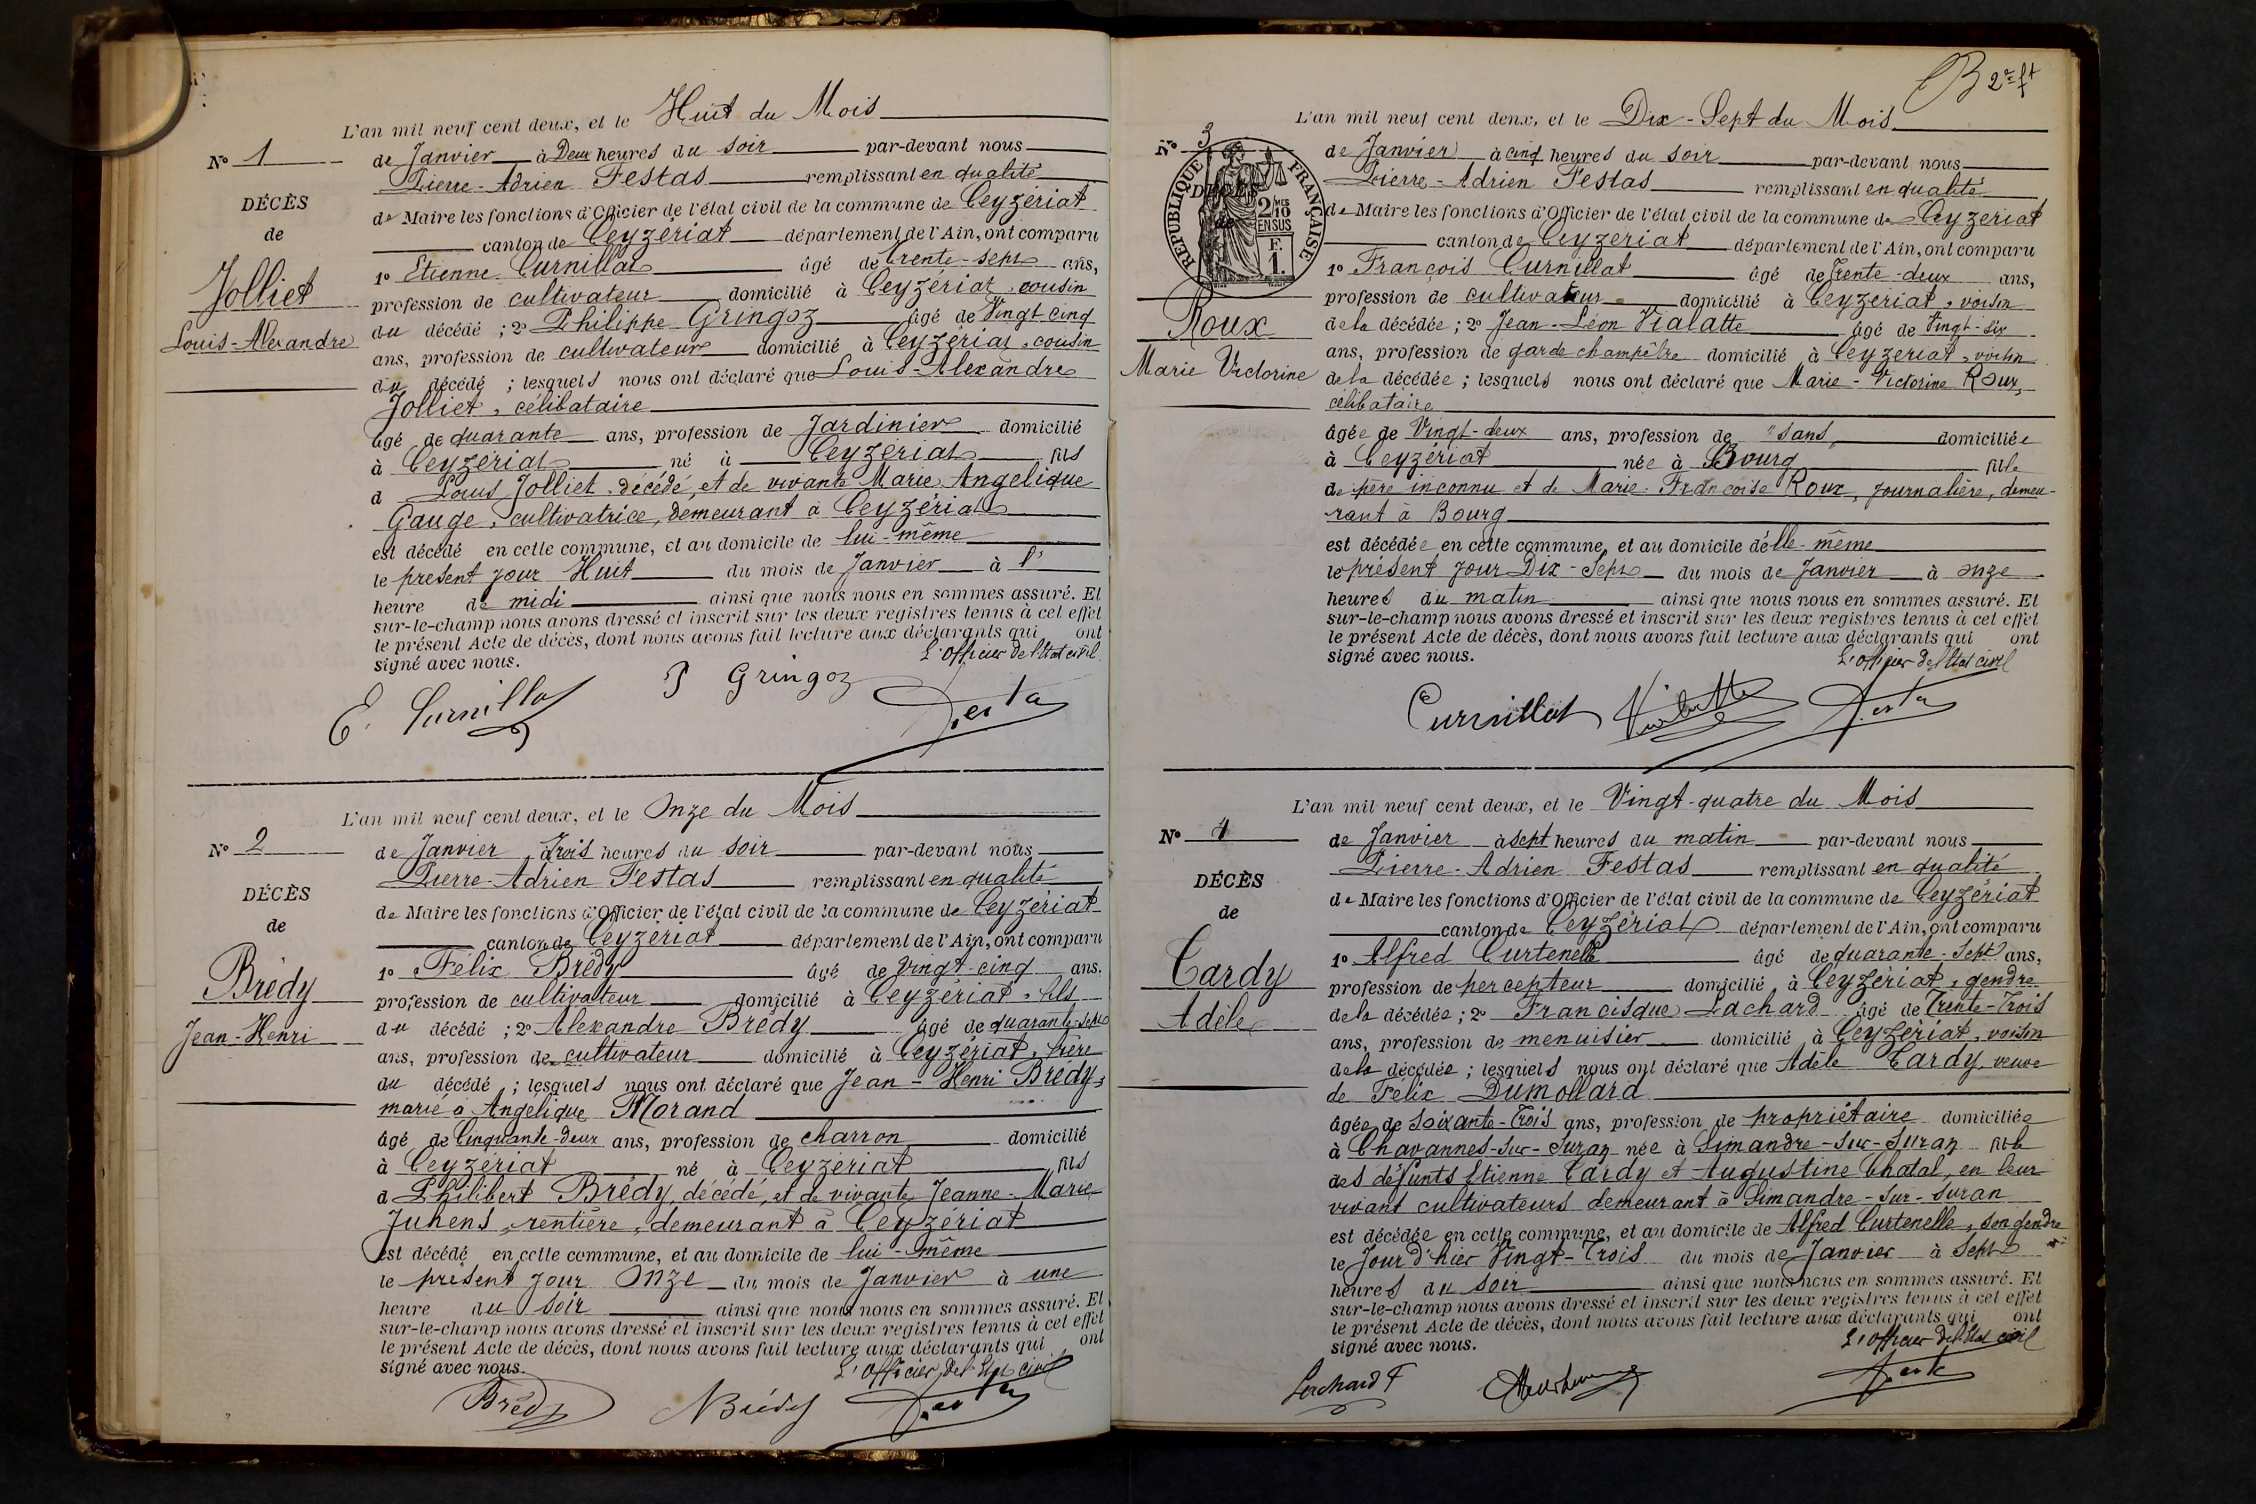 L'an mil neuf cent deux, et le Huit du Mois
No 1
de Janvier à Deux heures du soir par-devant nous
Pierre-Adrien Festas remplissant en qualité
DÉCÈS
de Maire les fonctions d'Officier de l'état civil de la commune de Ceyzériat
de
canton de Ceyzériat département de l'Ain, ont comparu
1o Etienne Curnillat âgé de trente-sept ans,
Jolliet
profession de cultivateur domicilié à Ceyzériat, cousin
du décédé ; 2o Philippe Gringoz âgé de Vingt cinq
Louis-Alexandre
ans, profession de cultivateur domicilié à Ceyzériat, cousin
du décédé ; lesquels nous ont déclaré que Louis-Alexandre
Jolliet, célibataire
âgé de quarante ans, profession de Jardinier domicilié
à Ceyzériat né à Ceyzériat fils
d Louis Jolliet décédé, et de vivante Marie Angelique
Gauge, cultivatrice, demeurant à Ceyzériat
est décédé en cette commune, et au domicile de lui-même
le présent jour Huit du mois de Janvier à l'
heure de midi ainsi que nous nous en sommes assuré. Et
sur-le-champ nous avons dressé et inscrit sur les deux registres tenus à cet effet
le présent Acte de décès, dont nous avons fait lecture aux déclarants qui ont
signé avec nous. L'Officier de l'Etat civil
E. Curnillat P Gringoz Festas
L'an mil neuf cent deux, et le Onze du Mois
No 2
de Janvier à trois heures du soir par-devant nous
Pierre-Adrien Festas remplissant en qualité
DÉCÈS
de Maire les fonctions d'Officier de l'état civil de la commune de Ceyzériat
de
canton de Ceyzériat département de l'Ain, ont comparu
1o Félix Brédy âgé de Vingt-cinq ans.
Brédy
profession de cultivateur domicilié à Ceyzériat, fils
du décédé ; 2o Alexandre Brédy âgé de quarante-sept
Jean-Henri
ans, profession de cultivateur domicilié à Ceyzériat, frère
du décédé ; lesquels nous ont déclaré que Jean-Henri Brédy,
marié à Angélique Morand
âgé de Cinquante-deux ans, profession de charron domicilié
à Ceyzériat né à Ceyzériat fils
d Philibert Brédy, décédé, et de vivante Jeanne-Marie
Juhens, rentière, demeurant à Ceyzériat
est décédé en cette commune, et au domicile de lui-même
le présent jour Onze du mois de Janvier à une
heure du soir ainsi que nous nous en sommes assuré. Et
sur-le-champ nous avons dressé et inscrit sur les deux registres tenus à cet effet
le présent Acte de décès, dont nous avons fait lecture aux déclarants qui ont
signé avec nous. L'Officier de l'Etat civil
Brédy Brédy Festas
2e ft
L'an mil neuf cent deux, et le Dix-Sept du Mois
No 3
de Janvier à cinq heures du soir par-devant nous
Pierre-Adrien Festas remplissant en qualité
RÉPUBLIQUE FRANÇAISE
2/10 MES EN SUS
F. 1.
DÉCÈS
de
de Maire les fonctions d'Officier de l'état civil de la commune de Ceyzériat
canton de Ceyzériat département de l'Ain, ont comparu
1o François Curnillat âgé de Trente-deux ans,
profession de cultivateur domicilié à Ceyzériat, voisin
Roux
de la décédée ; 2o Jean-Léon Vialatte âgé de Vingt-six
ans, profession de garde champêtre domicilié à Ceyzériat, voisin
Marie Victorine
de la décédée ; lesquels nous ont déclaré que Marie-Victorine Roux,
célibataire
âgée de Vingt-deux ans, profession de "sans" domiciliée
à Ceyzériat née à Bourg fille
de père inconnu et de Marie-Françoise Roux, journalière, demeu-
rant à Bourg
est décédée en cette commune, et au domicile d'elle-même
le présent jour Dix-Sept du mois de Janvier à onze
heures du matin ainsi que nous nous en sommes assuré. Et
sur-le-champ nous avons dressé et inscrit sur les deux registres tenus à cet effet
le présent Acte de décès, dont nous avons fait lecture aux déclarants qui ont
signé avec nous. L'Officier de l'Etat civil
Curnillat Vialatte Festas
L'an mil neuf cent deux, et le Vingt-quatre du Mois
No 4
de Janvier à sept heures du matin par-devant nous
Pierre-Adrien Festas remplissant en qualité
DÉCÈS
de Maire les fonctions d'Officier de l'état civil de la commune de Ceyzériat
de
canton de Ceyzériat département de l'Ain, ont comparu
1o Alfred Curtenelle âgé de quarante-sept ans,
Cardy
profession de percepteur domicilié à Ceyzériat, gendre
de la décédée ; 2o Francisque Lachard âgé de Trente-Trois
Adèle
ans, profession de menuisier domicilié à Ceyzériat, voisin
de la décédée ; lesquels nous ont déclaré que Adèle Cardy, veuve
de Félix Dumollard
âgée de soixante-Trois ans, profession de propriétaire domiciliée
à Chavannes-sur-Suran née à Simandre-sur-Suran fille
des défunts Etienne Cardy et Augustine Chatal, en leur
vivant cultivateurs demeurant à Simandre-sur-Suran
est décédée en cette commune, et au domicile de Alfred Curtenelle, son gendre
le Jour d'hier Vingt-Trois du mois de Janvier à Sept
heures du soir ainsi que nous nous en sommes assuré. Et
sur-le-champ nous avons dressé et inscrit sur les deux registres tenus à cet effet
le présent Acte de décès, dont nous avons fait lecture aux déclarants qui ont
signé avec nous. L'Officier de l'Etat civil
Lachard F Festas